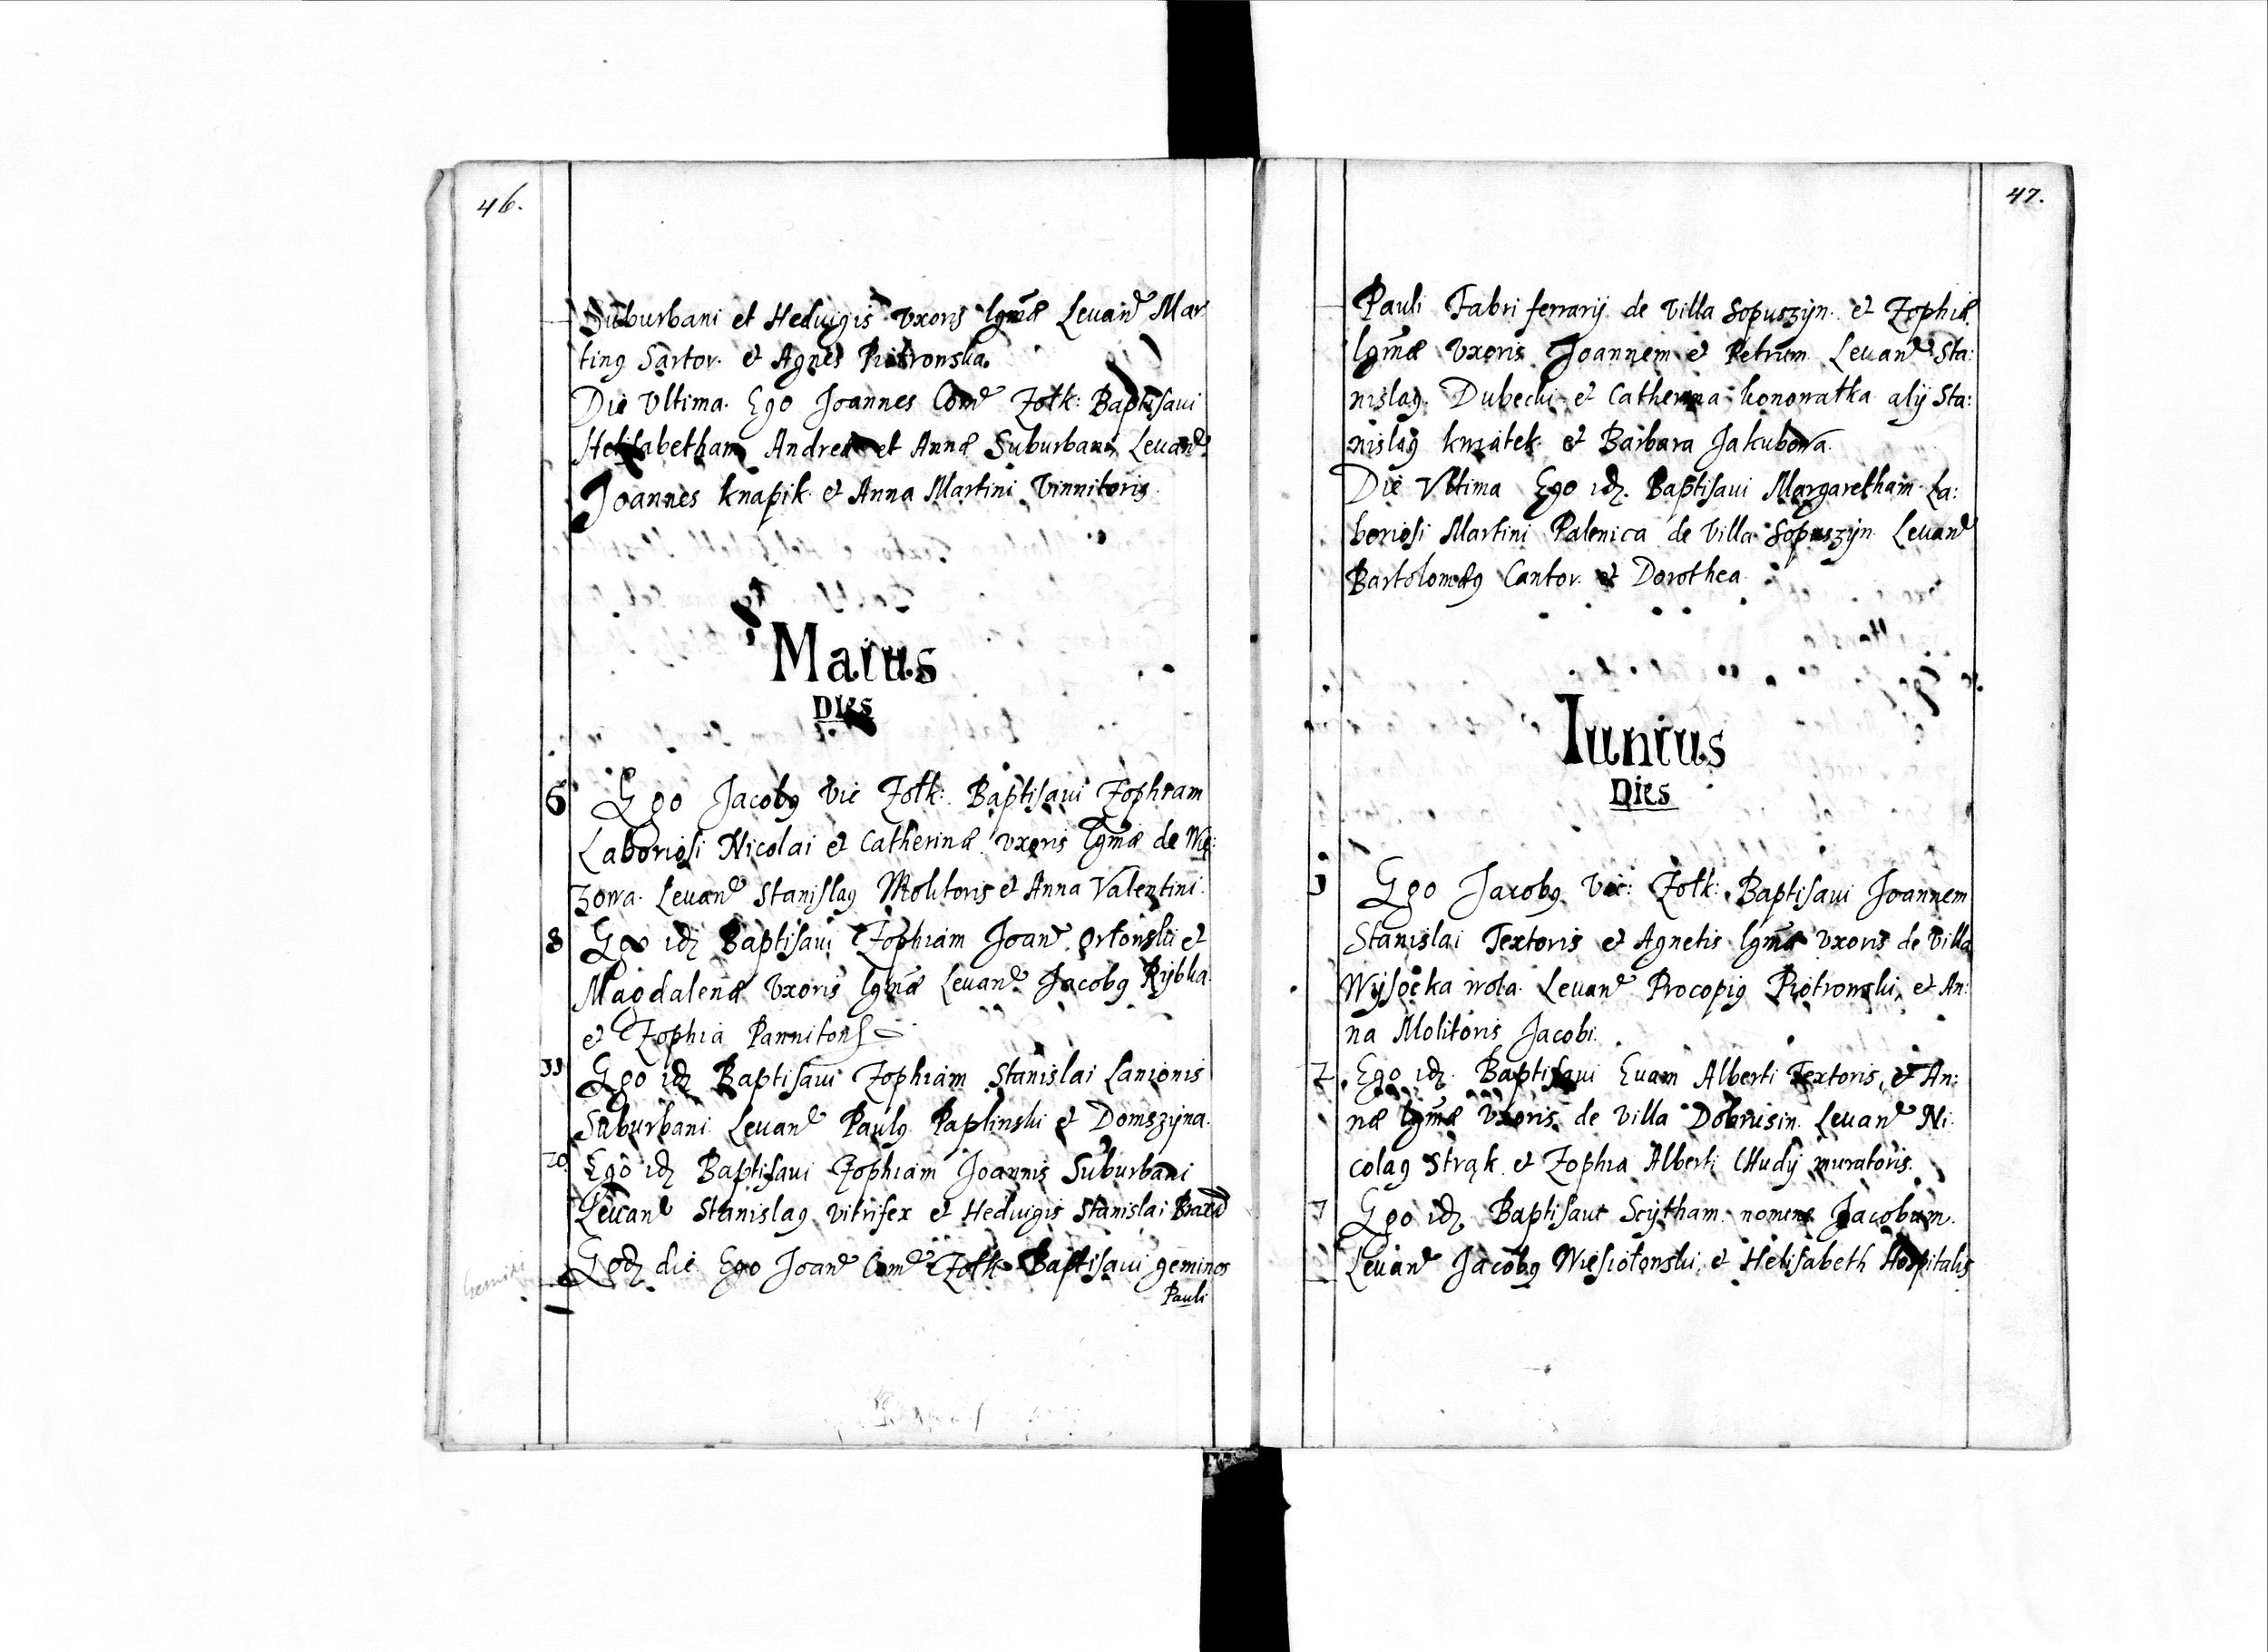 46.
Suburbani et Hedvigis Vxoris lgmæ Levand Mar
tinꝯ Sartor. et Agnes Piotrowska.
Die Vltima. Ego Joannes Comd Zołk: Baptisavi
Helisabetham Andreæ et Annæ Suburban Levand
Joannes knapik. et Anna Martini Vinnitoris.
Maius
Dies
6 Ego Jacobꝯ Vic Zołk: Baptisavi Zophiam
Laboriosi Nicolai et Catherinæ Vxoris lgmæ de Wię:
zowa. Levand Stanislaꝯ Molitoris et Anna Valentini.
8 Ego idꝫ Baptisavi Zophiam Joand Ortonski et
Magdalenæ Vxoris lgmæ Levand Jacobꝯ Rybka
et Zophia
11 Ego idꝫ Baptisavi Zophiam Stanislai Lanionis
Suburbani Levand Paulꝯ Paplinski et Domszyna.
20 Ego idꝫ Baptisavi Zophiam Joannis Suburbani
Levand Stanislaꝯ vitrifex et Hedvigis Stanislai
Eodꝫ die Ego Joand Comd Zołk Baptisavi geminos
Gemini
Pauli
47.
Pauli Fabri ferrarij de Villa Sopuszyn. et Zophiæ
lgmæ Vxoris Joannem et Petrum Levand Sta:
nislaꝯ. Dubecki et Catherina konowatka alij Sta:
nislaꝯ kmiatek et Barbara Jakubowa.
Die Vltima Ego idꝫ. Baptisavi Margaretham La:
boriosi Martini Palenica de Villa Sopuszyn Levand
Bartolomæꝯ Cantor. et Dorothea.
Iunius
Dies
1 Ego Jacobꝯ Vic: Zołk: Baptisavi Joannem
Stanislai Textoris et Agnetis lgmæ Vxoris de Villa
Wysocka wola. Levand Procopiꝯ Piotrowski, et An:
na Molitoris Jacobi.
2 Ego idꝫ. Baptisavi Evam Alberti Textoris, et An:
næ lgmæ Vxoris de Villa Dobrusin. Levand Ni
colaꝯ Strąk et Zophia Alberti Chudy muratoris.
7 Ego idꝫ Baptisavi Scytham nomine Jacobum.
Levand Jacobꝯ Wiesiołowski, et Helisabeth Hospitalis